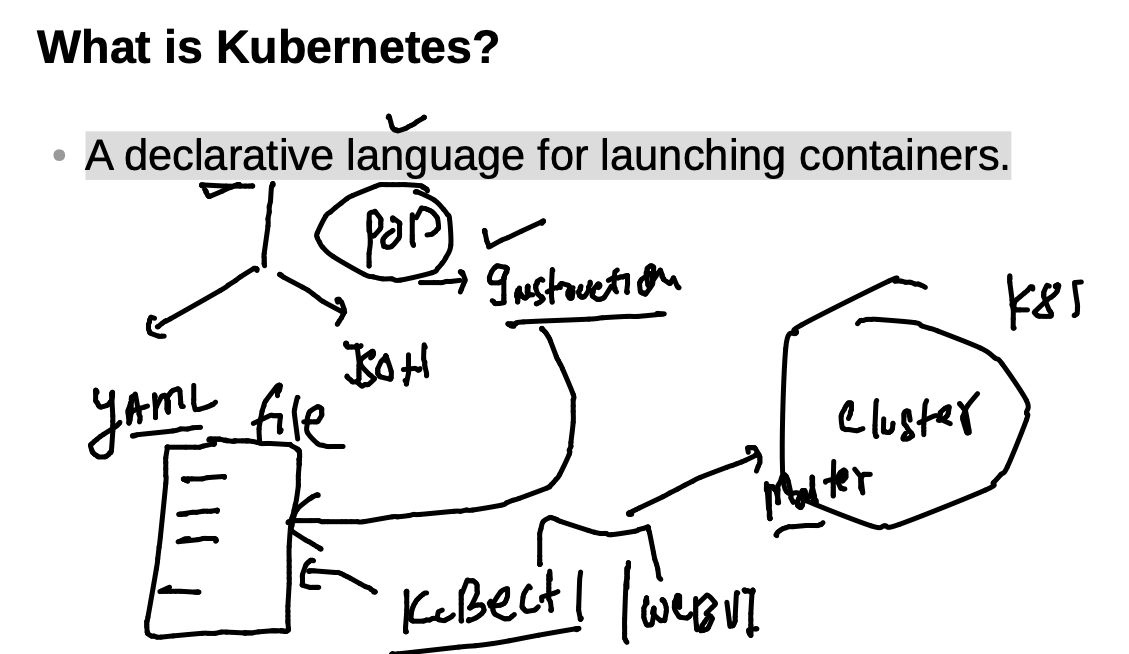 What is Kubernetes?
• A declarative language for launching containers.
POD
Instruction
K8S
JSON
YAML file
Cluster
Master
KuBectl | WEBUI